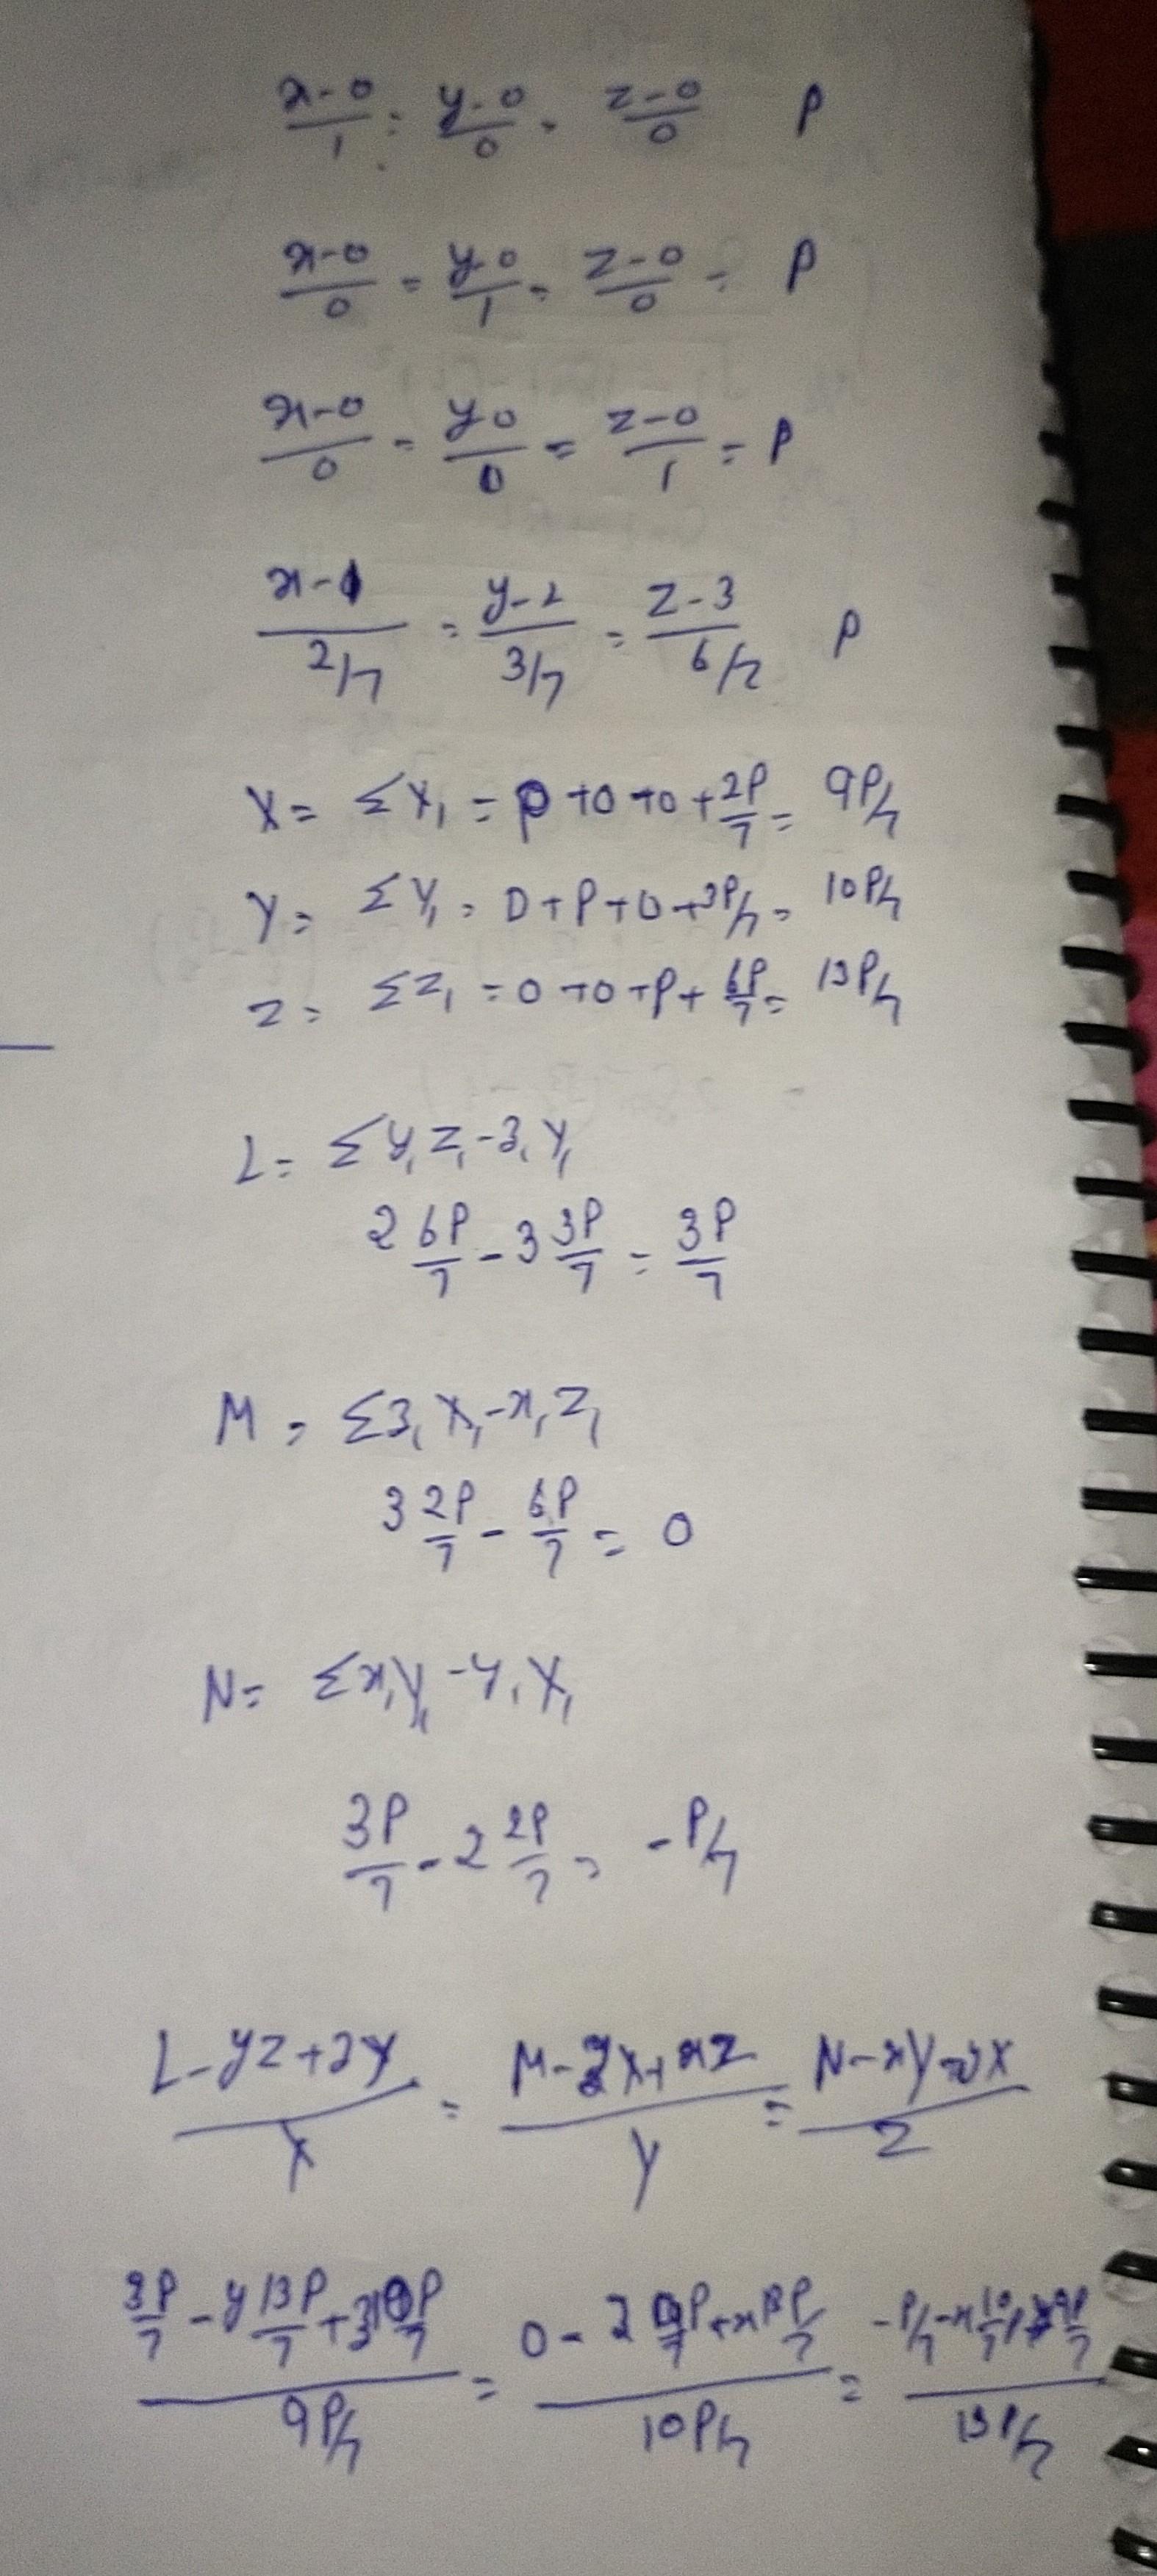 x-0/1 = y-0/0 = z-0/0 P
x-0/0 = y-0/1 = z-0/0 = P
x-0/0 = y-0/0 = z-0/1 = P
x-1/2/7 = y-2/3/7 = z-3/6/7 P
X = ΣX₁ = P+0+0+2P/7 = 9P/7
Y = ΣY₁ = 0+P+0+3P/7 = 10P/7
Z = ΣZ₁ = 0+0+P+6P/7 = 13P/7
L = Σy₁Z₁-z₁Y₁
2 6P/7 - 3 3P/7 = 3P/7
M = Σz₁X₁-x₁Z₁
3 2P/7 - 6P/7 = 0
N = Σx₁Y₁-y₁X₁
3P/7 - 2 2P/7 = -P/7
L-yZ+zY/X = M-zX+xZ/Y = N-xY+yX/Z
3P/7 - y 13P/7 + z 10P/7 / 9P/7 = 0 - z 9P/7 + x 13P/7 / 10P/7 = -P/7 - x 10/7 P + y 9P/7 / 13P/7